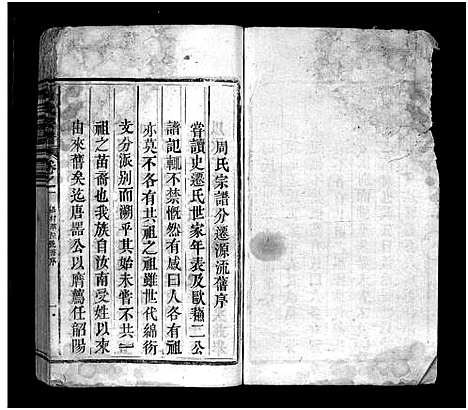 周氏宗譜分遷源流舊序
嘗讀史遷氏世家年表及歐蘇二公
譜記輒不禁慨然有感曰人各有祖
亦莫不各有共祖之祖雖世代綿衍
支分派別而溯乎其始未嘗不共一
祖之苗裔也我族自汝南受姓以來
由來舊矣迄唐諤公以膺薦任韶陽